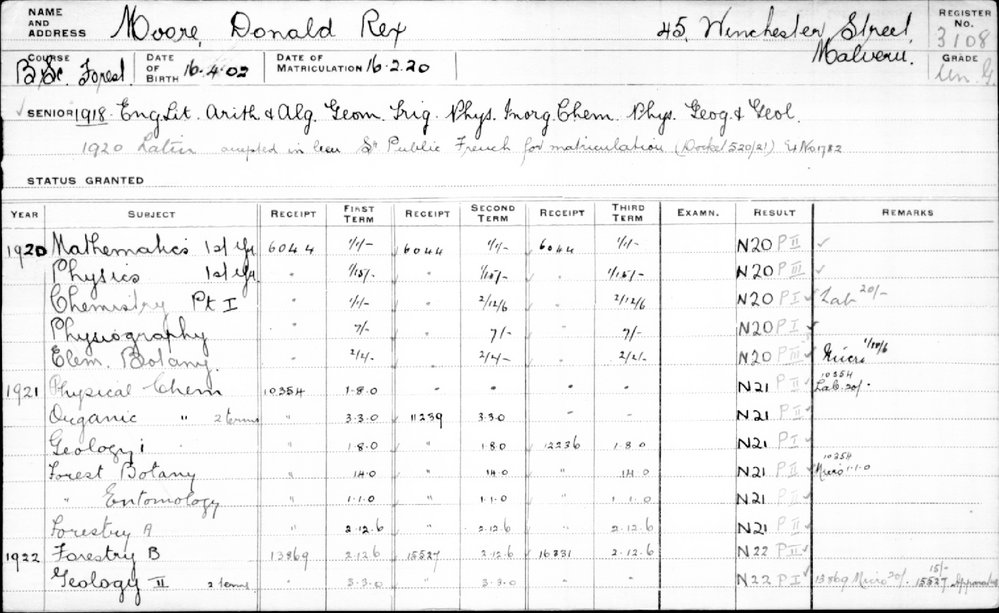 NAME AND ADDRESS Moore, Donald Rex 45, Winchester Street, Malvern. REGISTER No. 3108
COURSE B.Sc. Forest. DATE OF BIRTH 16.4.02 DATE OF MATRICULATION 16.2.20 GRADE Un. G.
SENIOR 1918. Eng. Lit. Arith & Alg. Geom. Trig. Phys. Inorg. Chem. Phys. Geog. & Geol.
1920 Latin accepted in lieu Sr Public French for matriculation (Docket 520/21) No 1782
STATUS GRANTED
YEAR SUBJECT RECEIPT FIRST TERM RECEIPT SECOND TERM RECEIPT THIRD TERM EXAMN. RESULT REMARKS
1920 Mathematics 1st Yr 6044 1/1/- 6044 1/1/- 6044 1/1/- N20 P II
Physics 1st Yr. " 1/15/- " 1/15/- " 1/15/- N20 P III
Chemistry Pt I " 1/1/- " 2/12/6 " 2/12/6 N20 P I Lab 20/-
Physiography " 7/- " 7/- " 7/- N20 P I
Elem. Botany. " 2/2/- " 2/2/- " 2/2/- N20 P III Micro 1/10/6
1921 Physical Chem 10354 1.8.0 " " " " N21 P I 10354 Lab. 20/-
Organic " 2 terms " 3.3.0 11239 3.3.0 - - N21 P II
Geology i " 1.8.0 " 1.8.0 12236 1.8.0 N21 P I
Forest Botany " 14.0 " 14.0 " 14.0 N21 P II 10354 Micro 1.1.0
" Entomology " 1.1.0 " 1.1.0 " 1.1.0 N21 P II
Forestry A " 2.12.6 " 2.12.6 " 2.12.6 N21 P II
1922 Forestry B 13869 2.12.6 15527 2.12.6 16331 2.12.6 N22 P III
Geology II 2 terms " 3.3.0 " 3.3.0 N22 P I 13869 Micro 20/- 15/- 15527 Apparatus